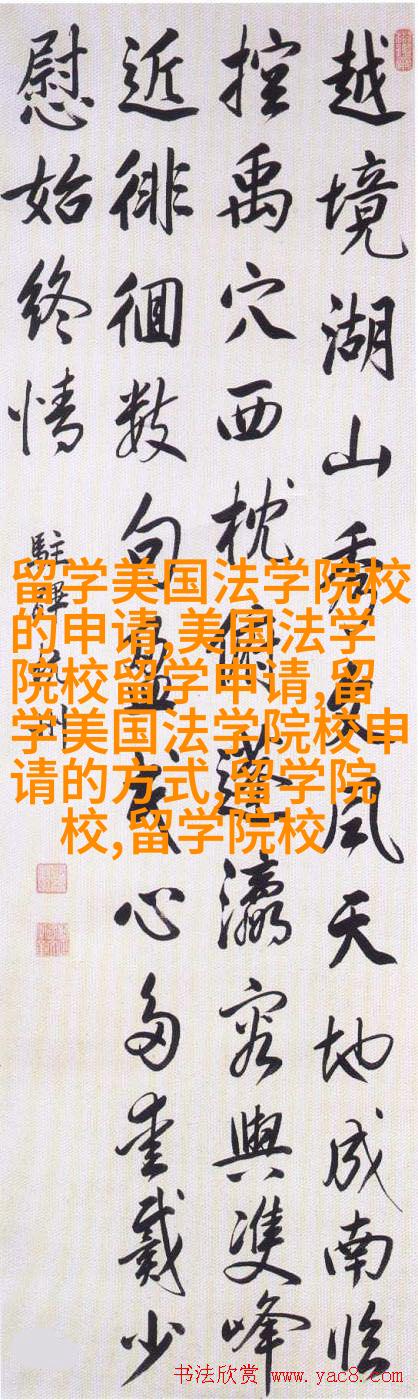 越境湖山秀文風天地成南临
控禹穴西枕俯蓬瀛容與雙峰
近徘徊数句盈感心多愛戴少
慰始终情
駐蹕杭州
留学美国法学院校
的申请,美国法学
院校留学申请,留
学美国法学院校申
请的方式,留学院
校,留学院校
书法欣赏 www.yac8.com